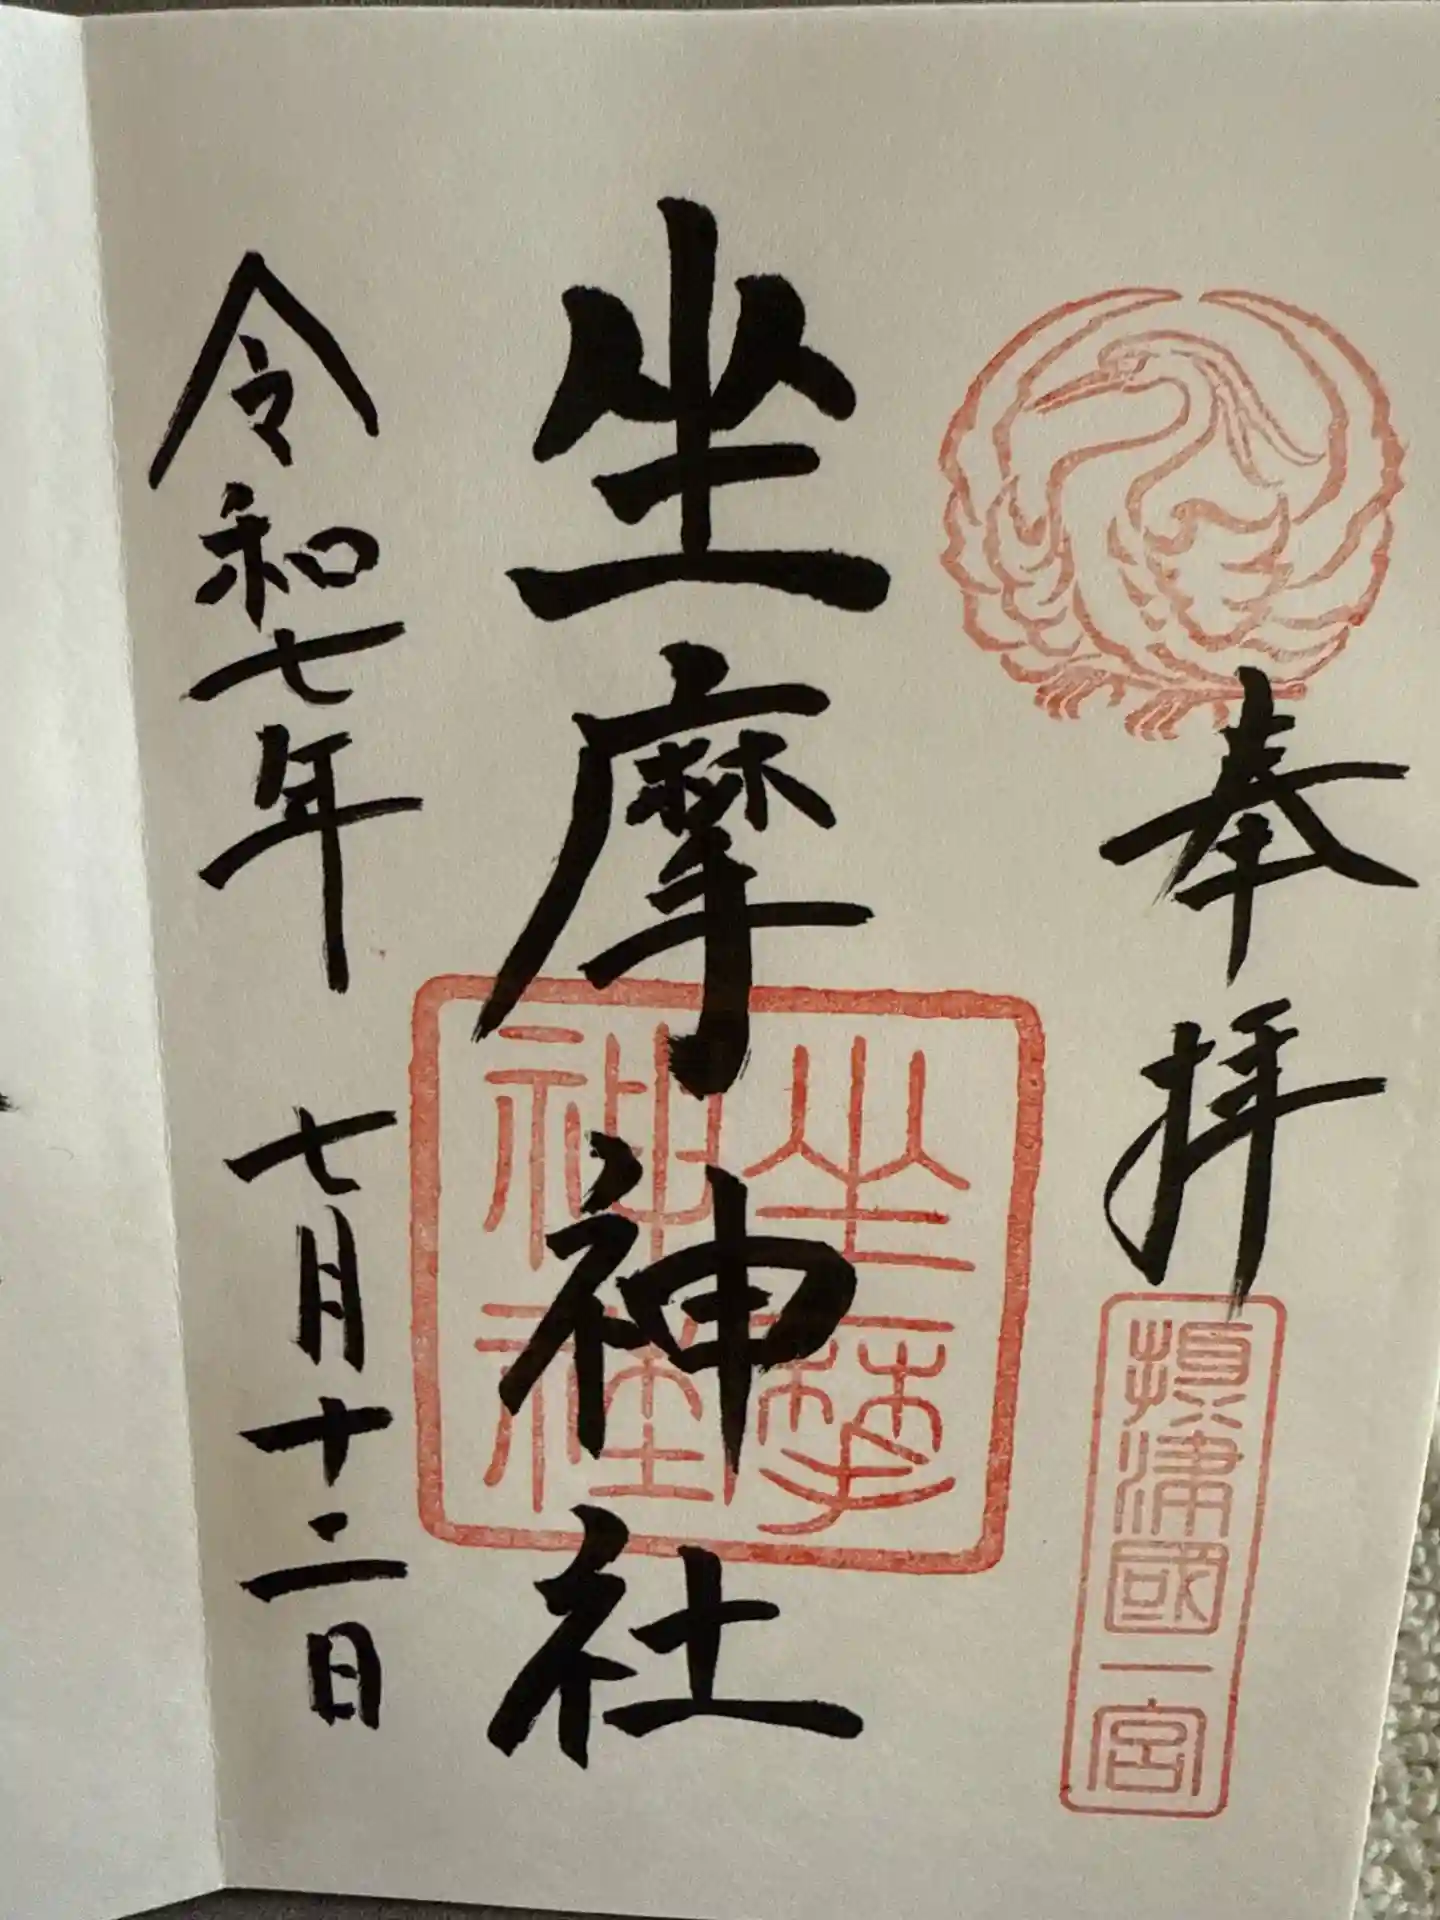 奉拝
攝津國一宮
坐摩神社
坐摩
神社
令和七年 七月十二日